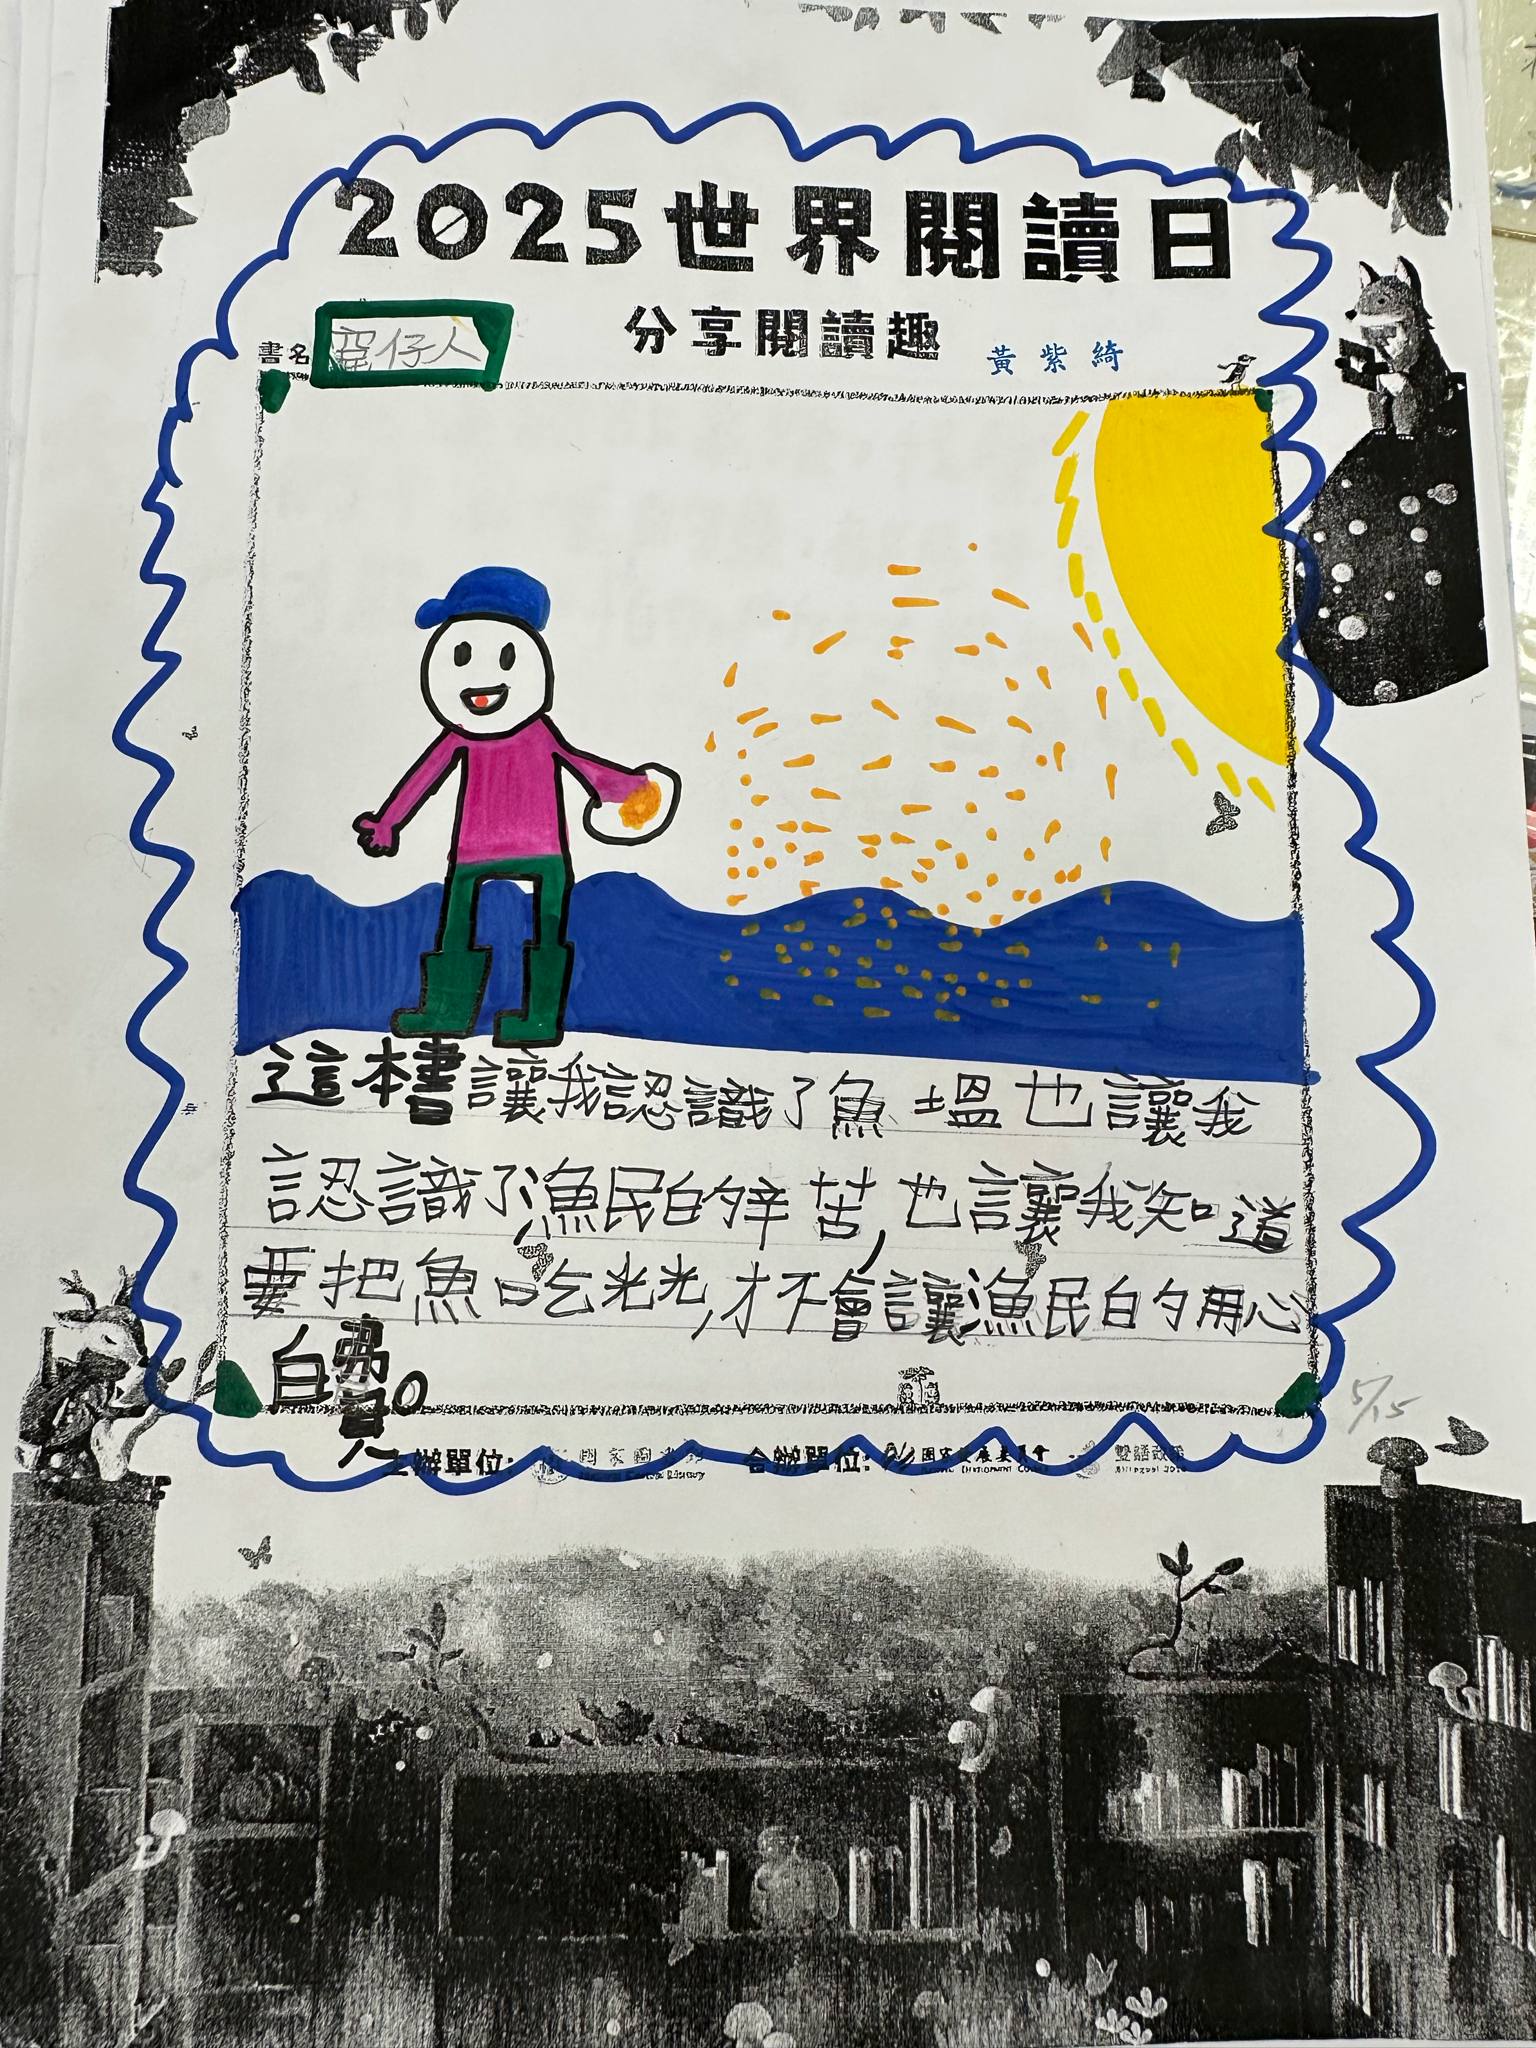 2025世界閱讀日
分享閱讀趣
書名 罷仔人
黃紫綺
這本書讓我認識了魚塭也讓我
認識了漁民的辛苦,也讓我知道
要把魚吃光光,才不會讓漁民的用心
白費。
5/15
主辦單位: 國家圖書館 合辦單位: 國家發展委員會 雙語政策
National Central Library